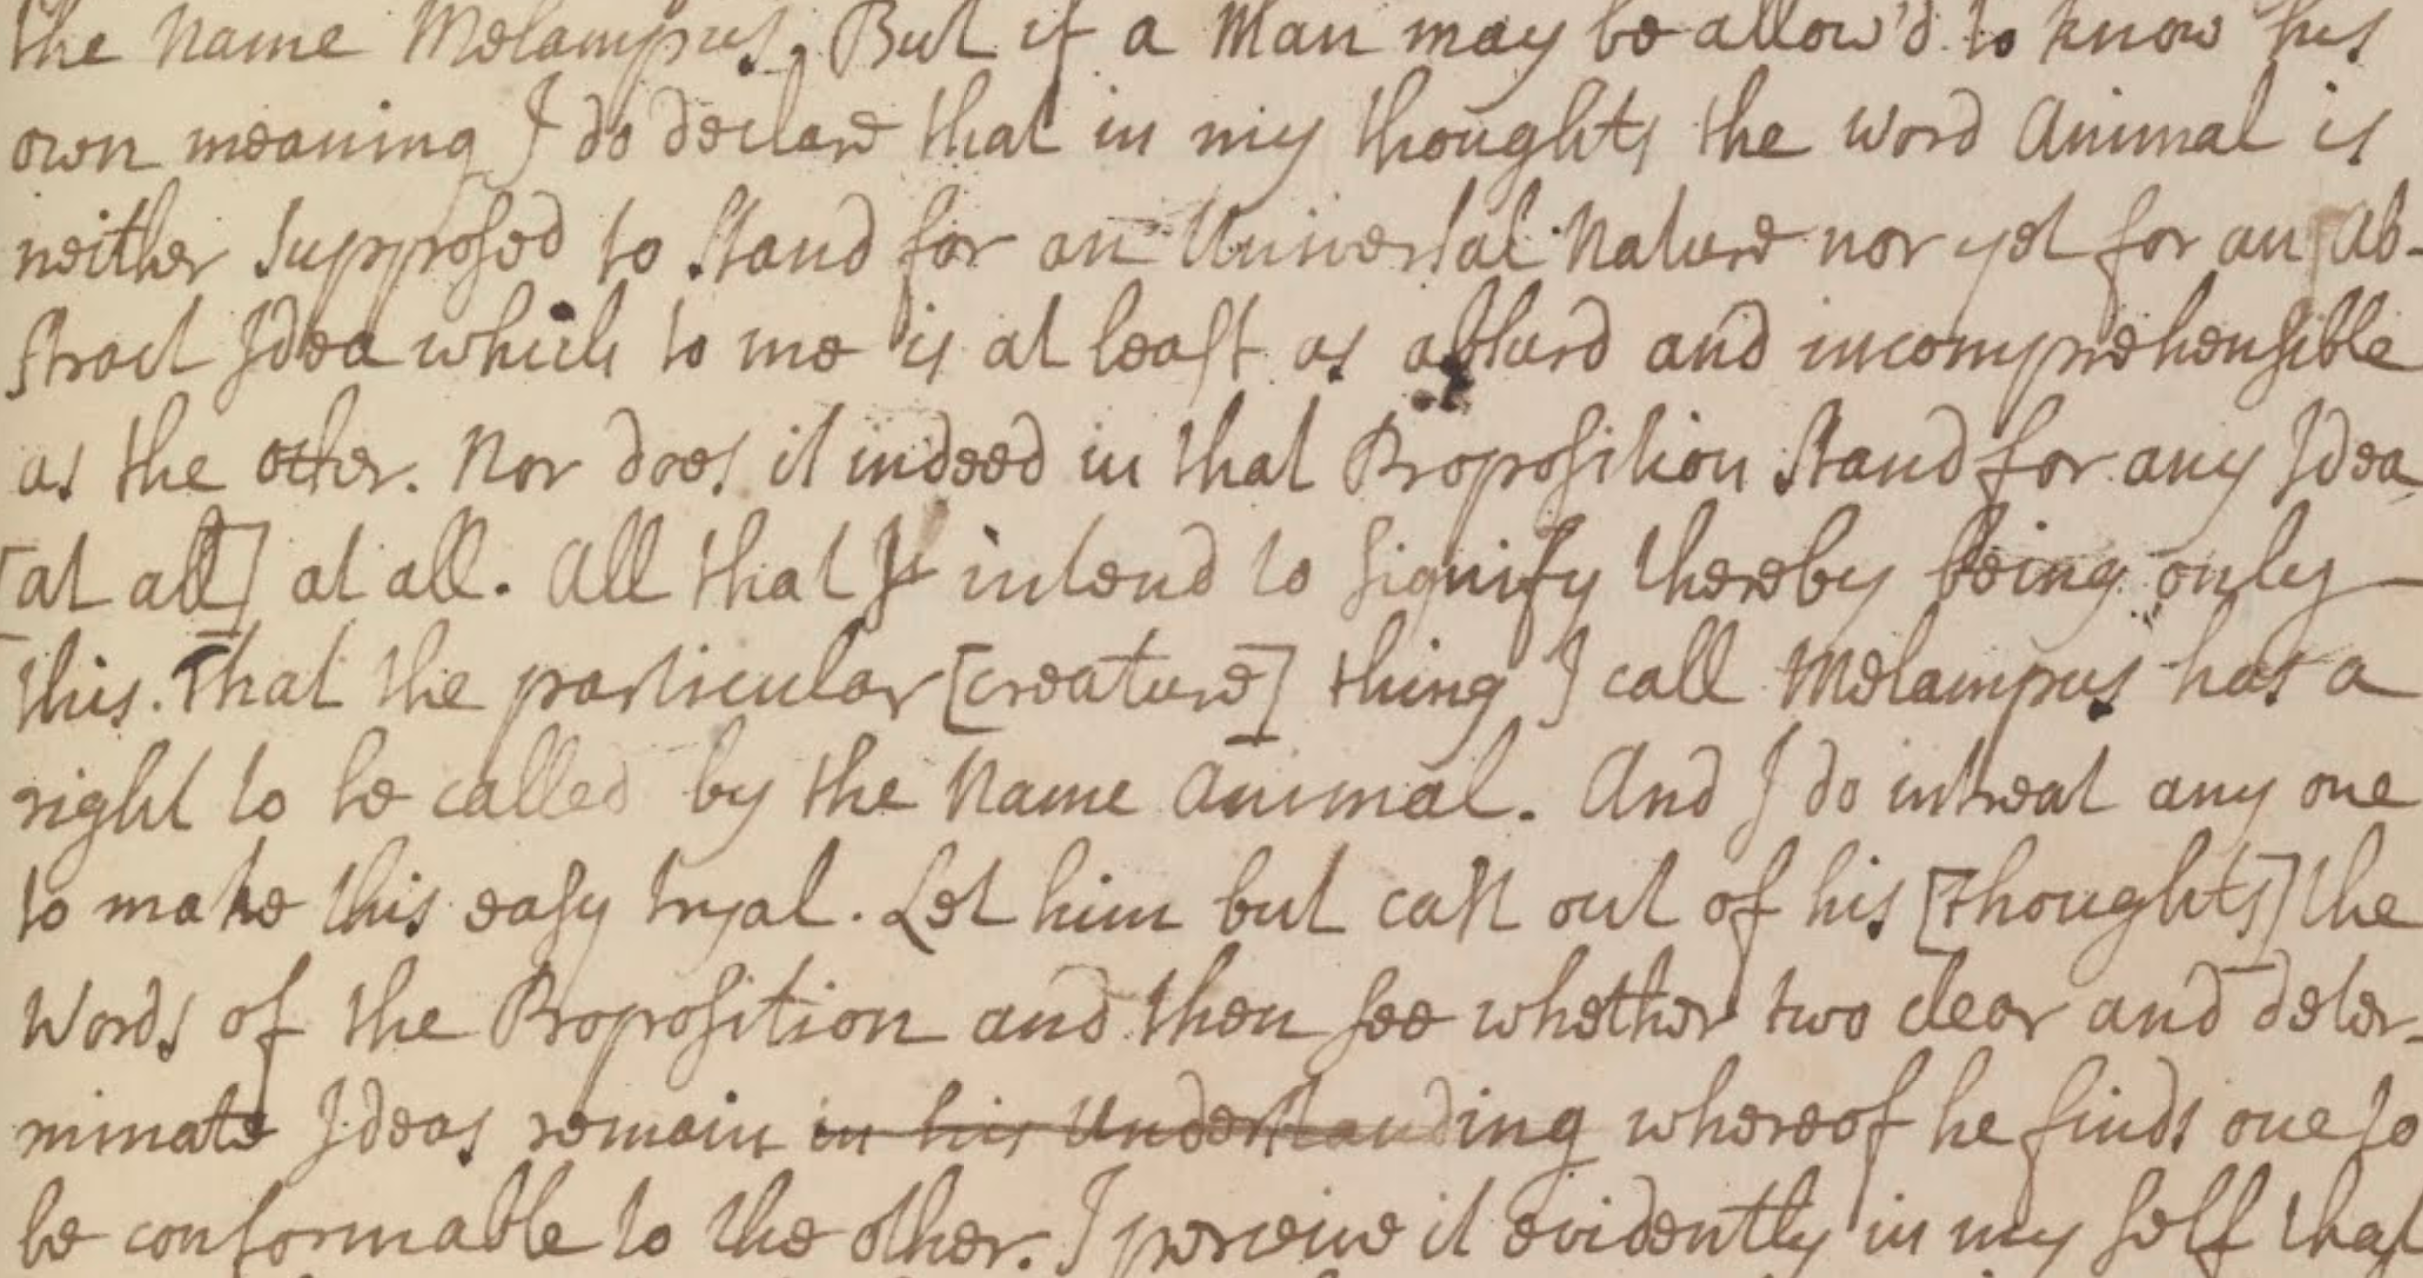 the Name Melampus. But if a Man may be allow'd to know his
own meaning I do declare that in my thoughts the Word Animal is
neither supposed to stand for an Universal Nature nor yet for an Ab-
stract Idea which to me is at least as absurd and incomprehensible
as the other. Nor does it indeed in that Proposition stand for any Idea
[at all] at all. All that I intend to signify thereby being only
this. That the particular [creature] thing I call Melampus has a
right to be called by the Name Animal. And I do intreat any one
to make this easy tryal. Let him but cast out of his [thoughts] the
Words of the Proposition and then see whether two clear and deter-
minate Ideas remain in his Understanding whereof he finds one to
be conformable to the other. I perceive it evidently in my self that